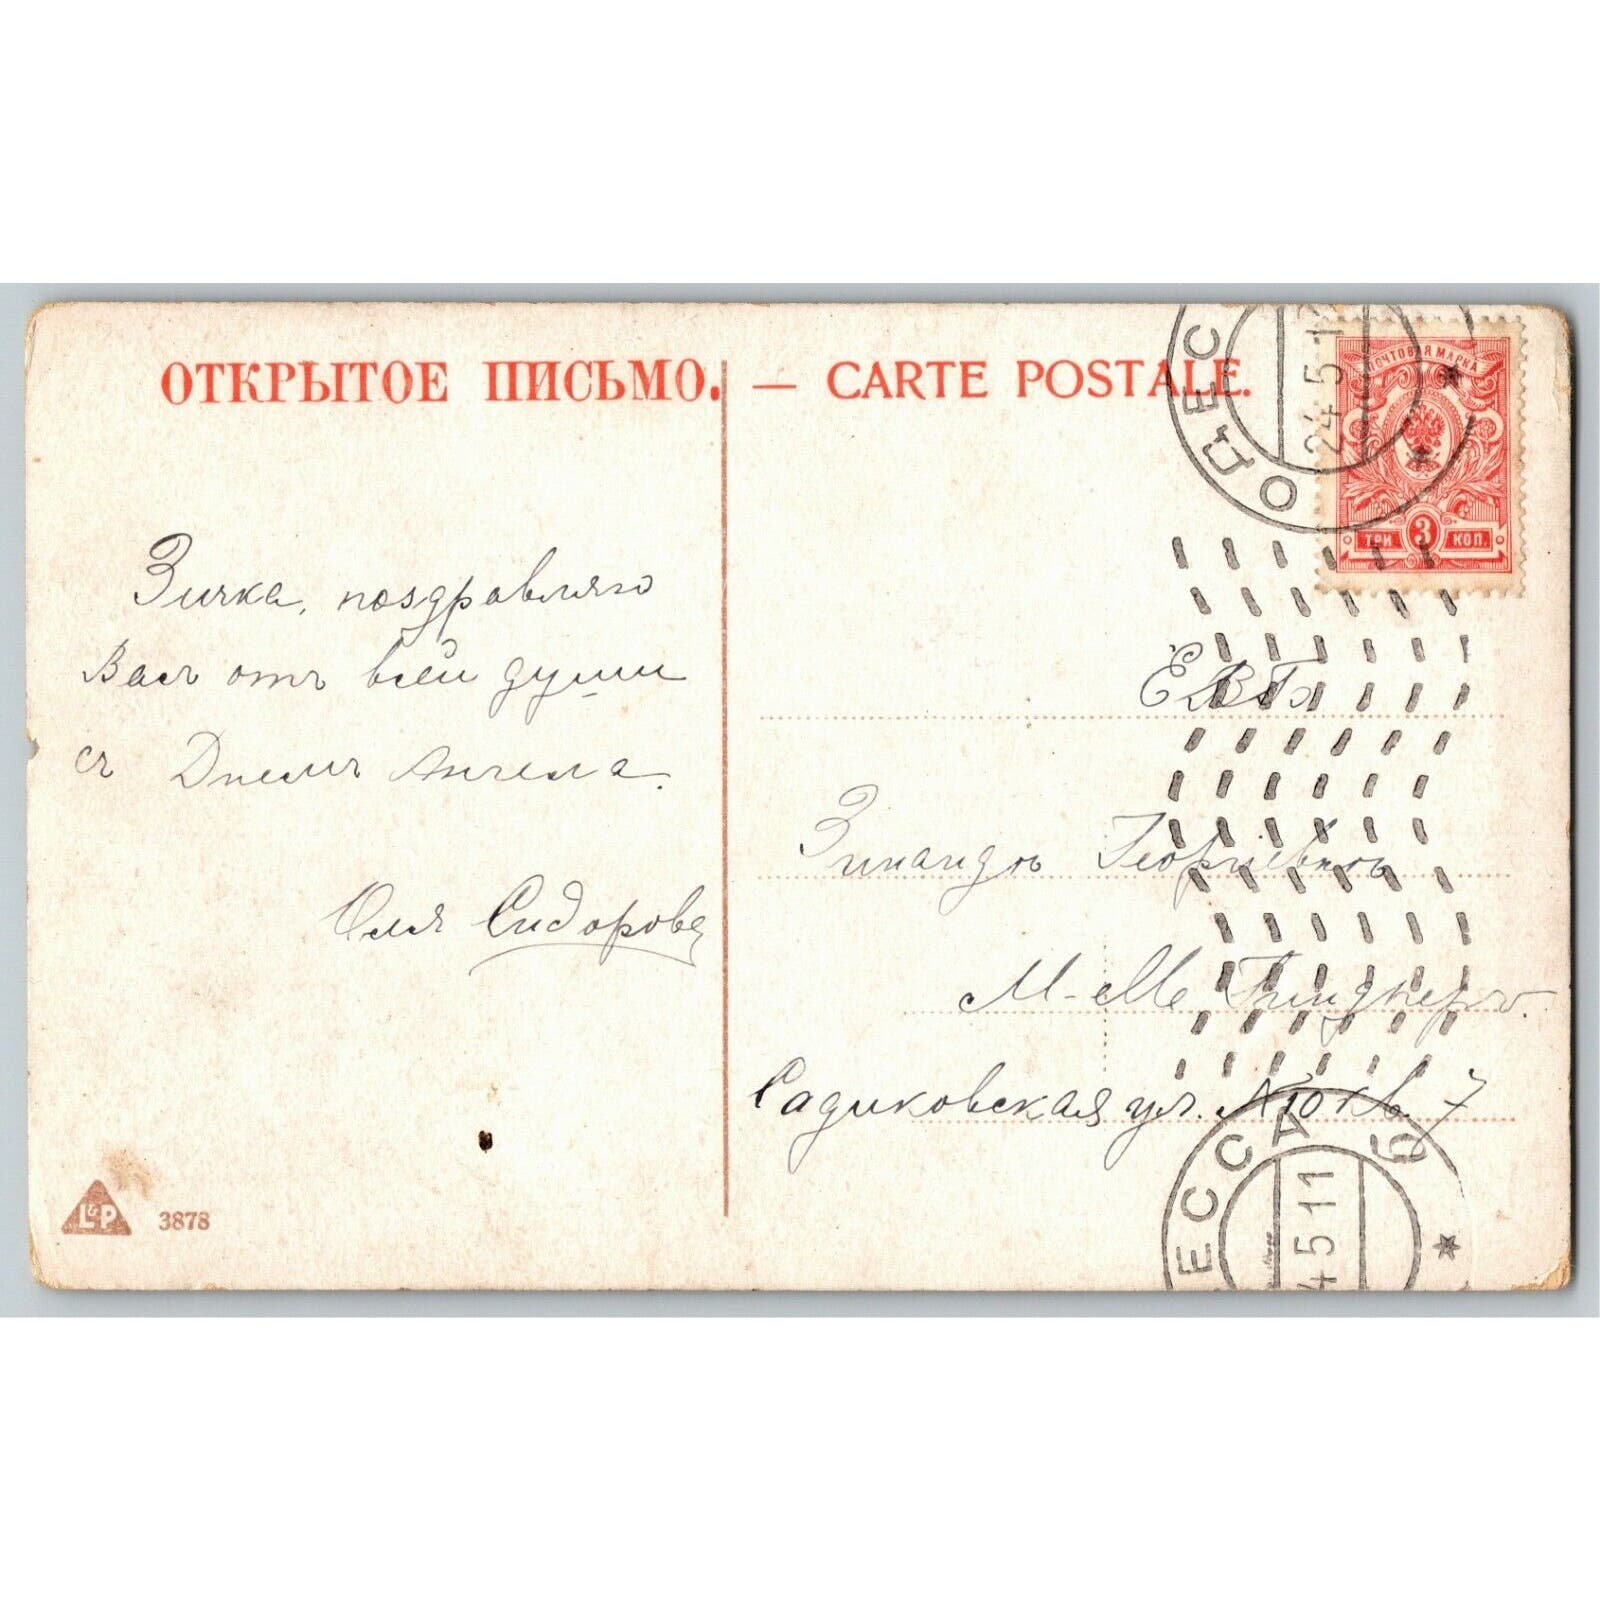 ОТКРЫТОЕ ПИСЬМО. — CARTE POSTALE.
ПОЧТОВАЯ МАРКА
ТРИ 3 КОП.
ОДЕС
24 5 1
Зичка, поздравляю
Васъ отъ всей души
съ Днемъ Ангела.
Оля Сидорова
ЕВБ
Зинаидѣ Георгіевнѣ
М-elle
Садиковская ул. 7
ЕССА 6
4 5 11
L&P 3878